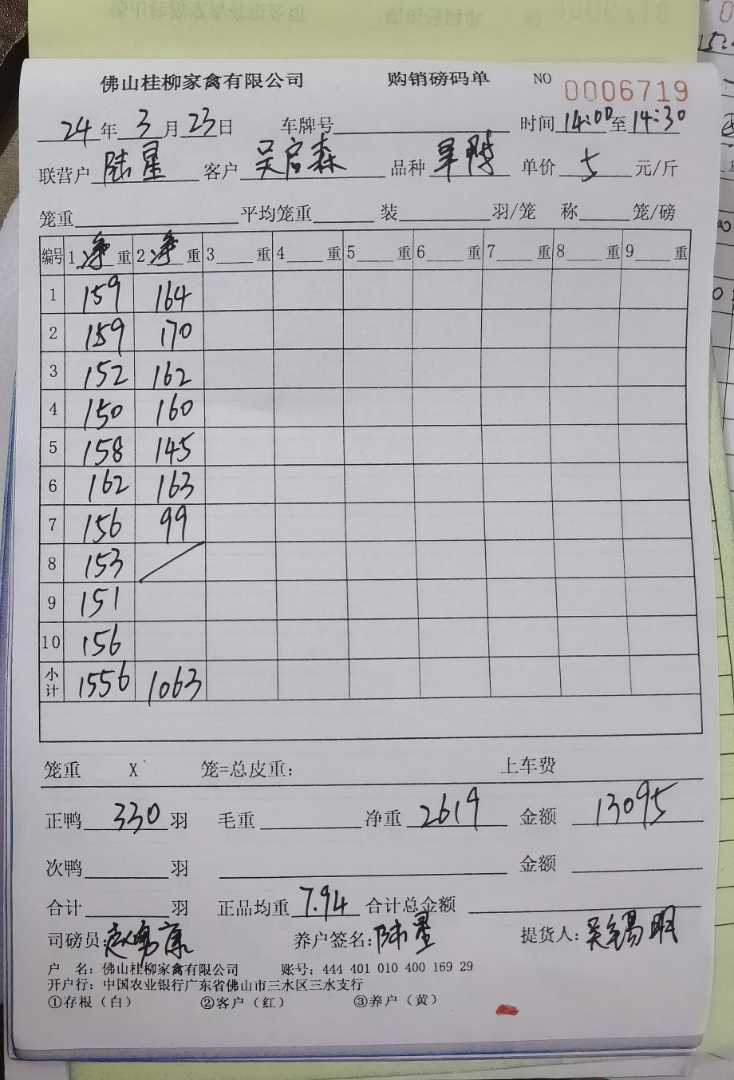 佛山桂柳家禽有限公司 购销磅码单 NO 0006719
24年3月23日 车牌号 时间14:00至14:30
联营户 陆星 客户 吴启森 品种 单价 5 元/斤
笼重 平均笼重 装 羽/笼 称 笼/磅
编号 1净重 2净重 3 重 4 重 5 重 6 重 7 重 8 重 9 重
1 159 164
2 159 170
3 152 162
4 150 160
5 158 145
6 162 163
7 156 99
8 153 /
9 151
10 156
小计 1556 1063
笼重 X 笼=总皮重: 上车费
正鸭 330 羽 毛重 净重 2619 金额 13095
次鸭 羽 金额
合计 羽 正品均重 7.94 合计总金额
司磅员: 养户签名:陆星 提货人:吴锡明
户 名: 佛山桂柳家禽有限公司 账号: 444 401 010 400 169 29
开户行: 中国农业银行广东省佛山市三水区三水支行
①存根(白) ②客户(红) ③养户(黄)